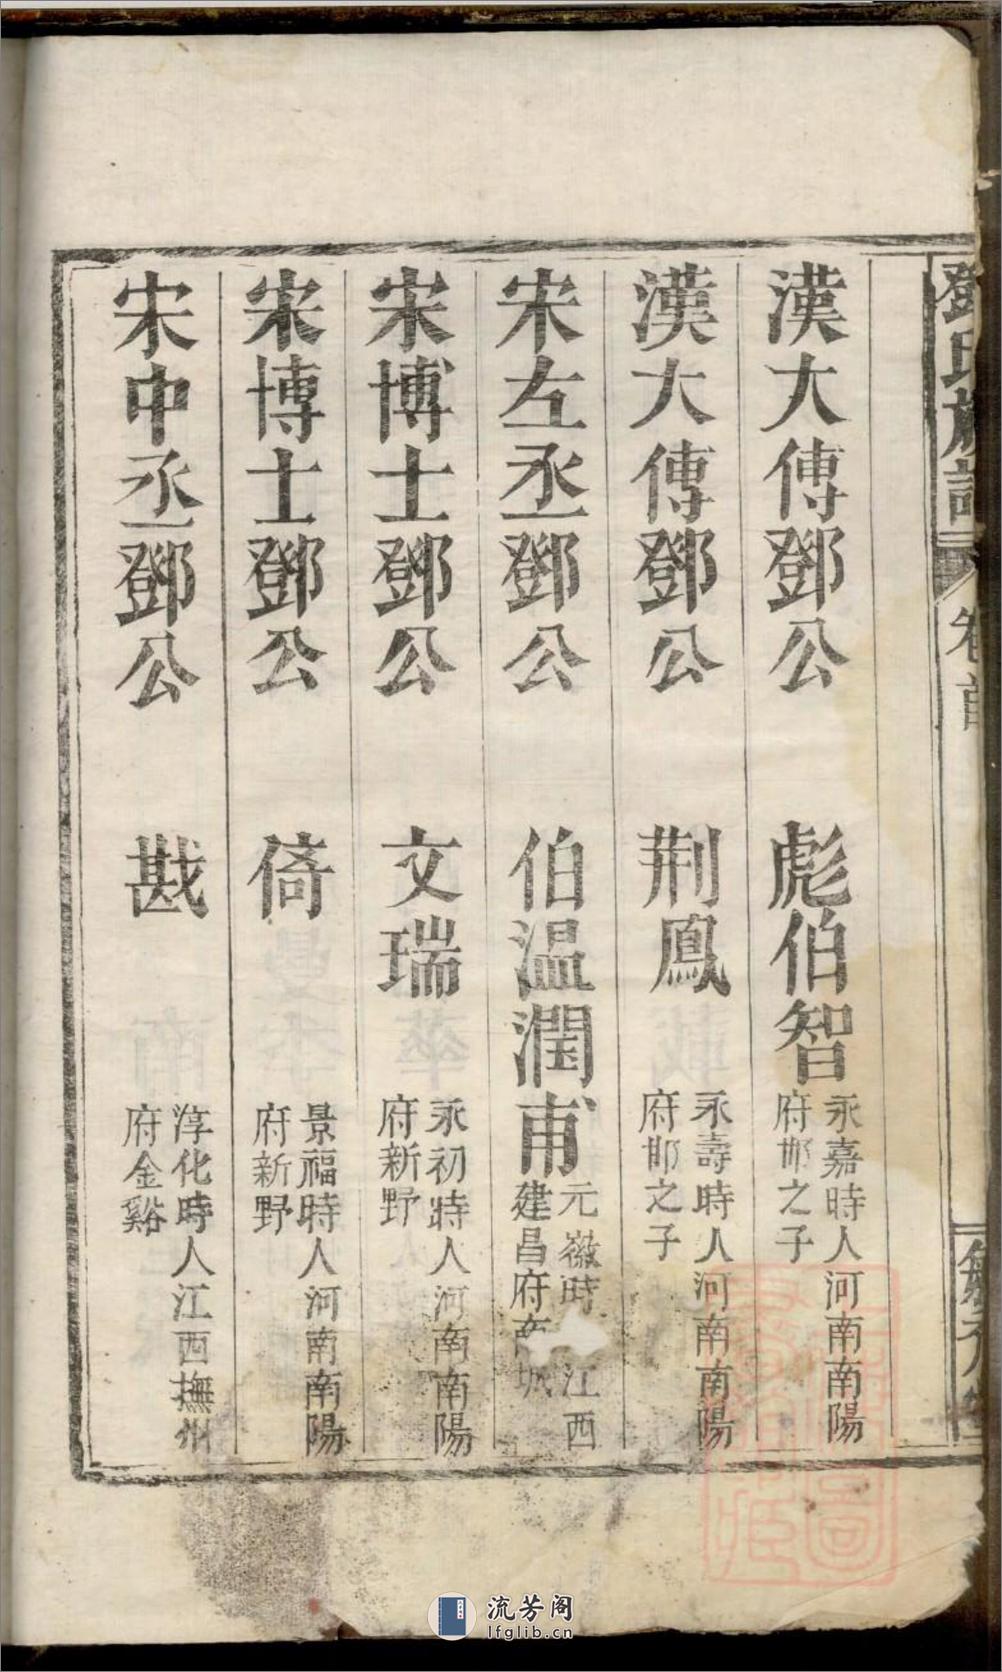 鄧氏族譜
卷首
漢大傅鄧公 彪伯智 永嘉時人河南南陽
府邯之子
漢大傅鄧公 荆鳳 永壽時人河南南陽
府邯之子
宋左丞鄧公 伯温潤甫 元徽時 江西
建昌府南城
宋博士鄧公 文瑞 永初時人河南南陽
府新野
宋博士鄧公 倚 景福時人河南南陽
府新野
宋中丞鄧公 戡 淳化時人江西撫州
府金谿
流芳阁
lfglib.cn